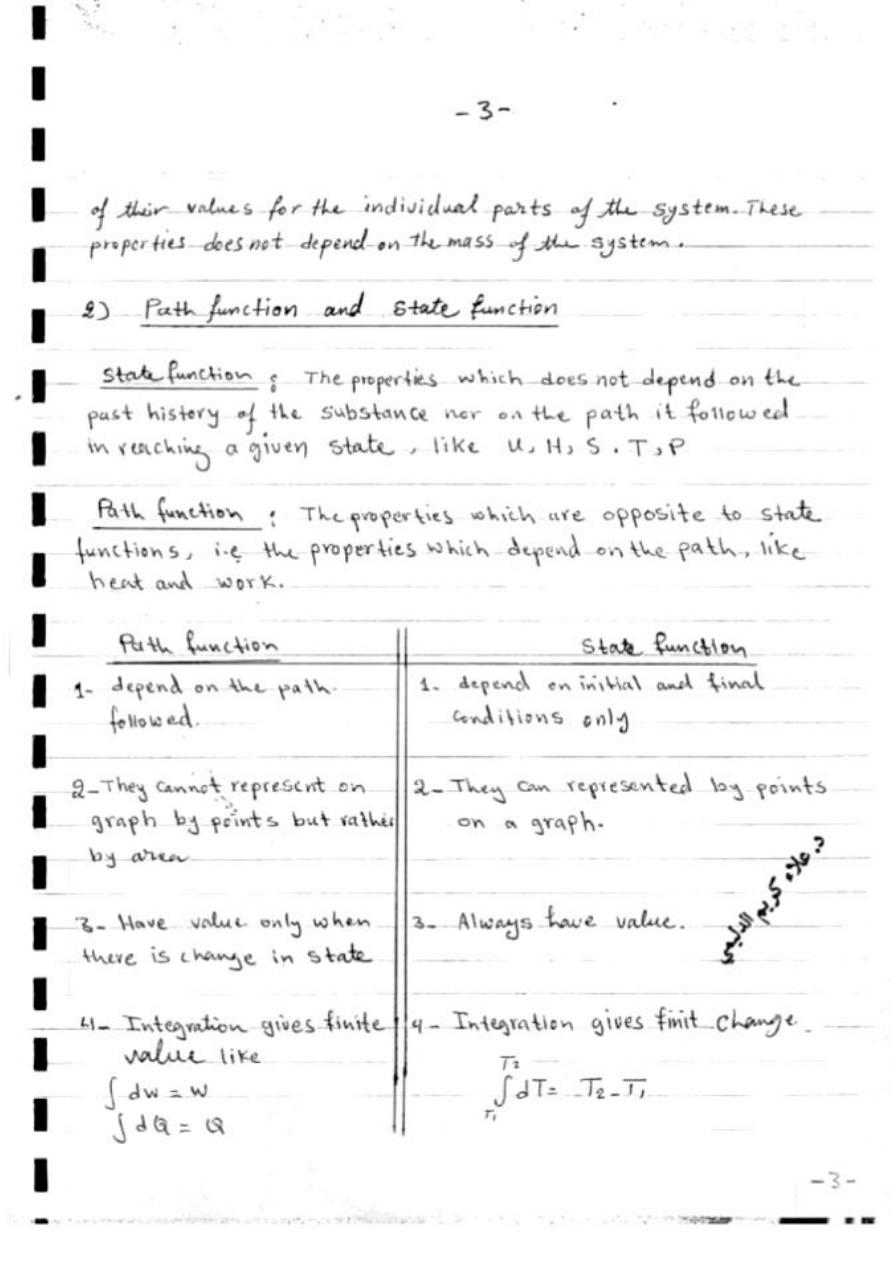 -3-
of their values for the individual parts of the system. These
properties does not depend on the mass of the system.
2) Path function and State function
State function : The properties which does not depend on the
past history of the substance nor on the path it followed
in reaching a given state, like U, H, S. T, P
Path function : The properties which are opposite to state
functions, i.e the properties which depend on the path, like
heat and work.
Path function
1- depend on the path.
followed.
2- They cannot represent on
graph by points but rather
by area
3- Have value only when
there is change in state
4- Integration gives finite
value like
∫ dw = W
∫ dQ = Q
State function
1- depend on initial and final
conditions only
2- They can represented by points
on a graph.
3- Always have value.
د. علاء كريم الدليمي
4- Integration gives finit change.
T2
∫ dT = T2 - T1
T1
-3-